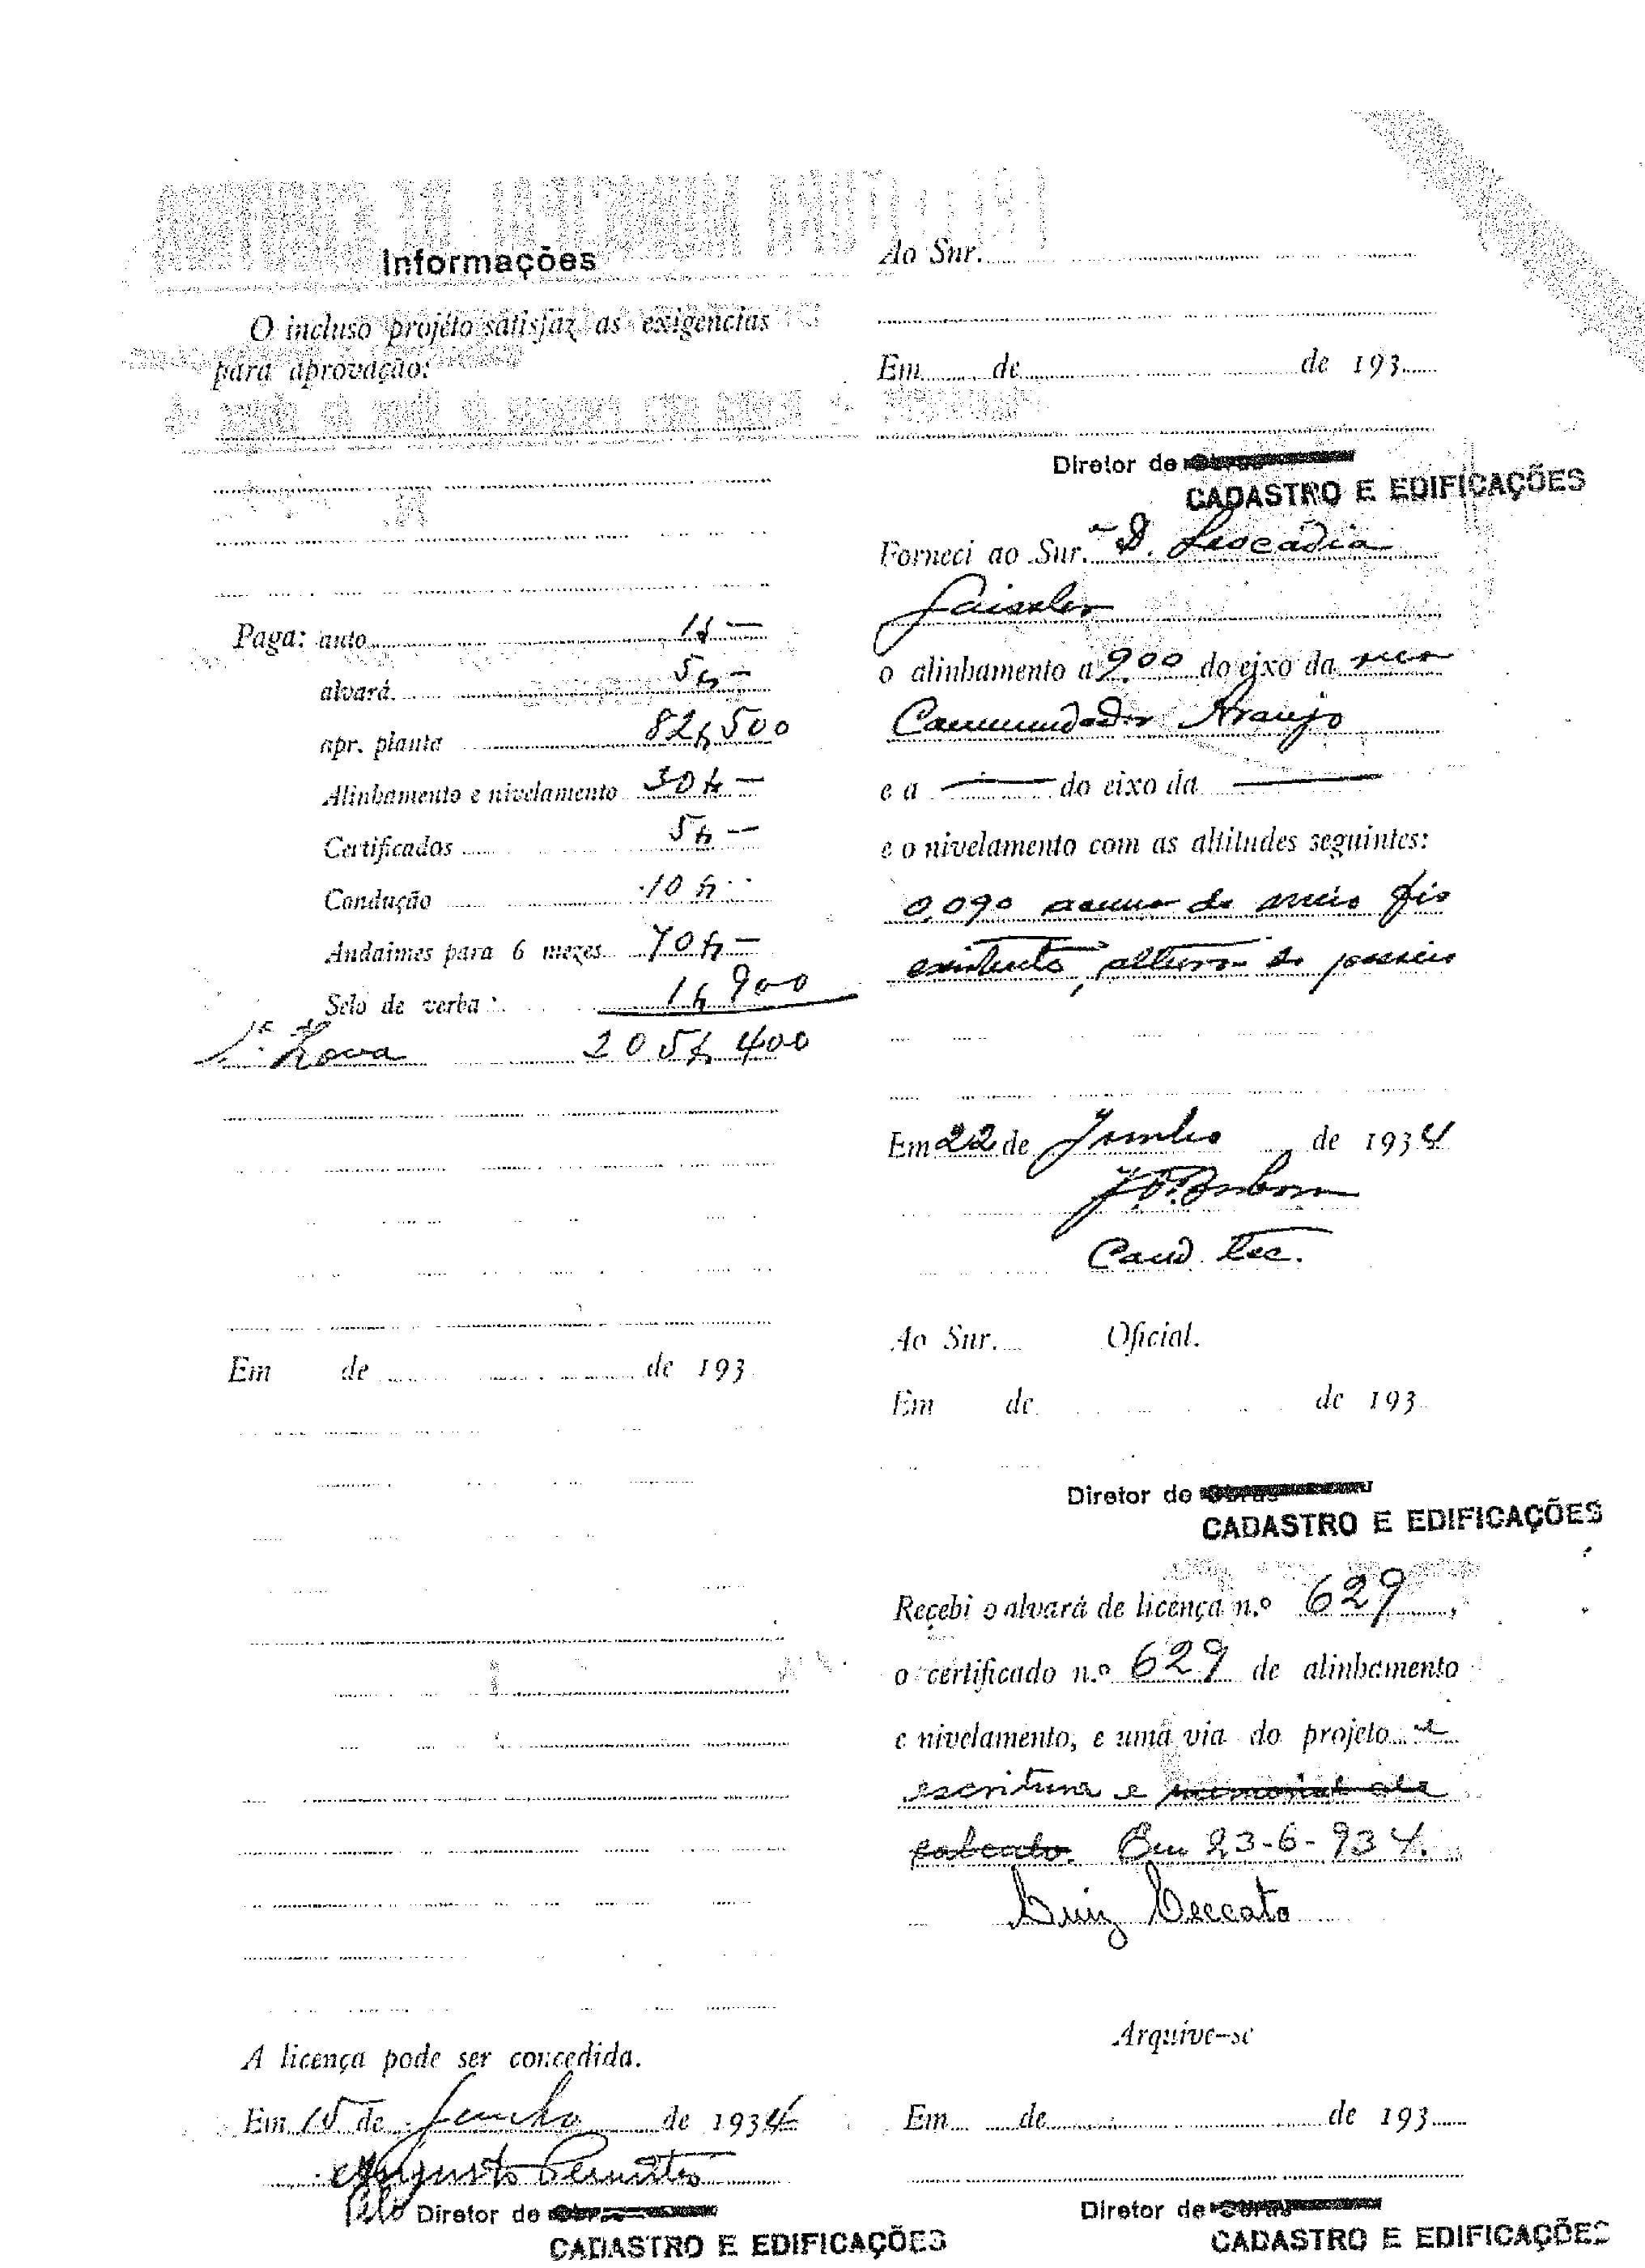 Informações
O incluso projéto satisfaz as exigencias
para aprovação:
Paga: auto 1$ —
alvará 5$ —
apr. planta 82$500
Alinhamento e nivelamento 30$ —
Certificados 5$ —
Condução 10$
Andaimes para 6 mezes 70$ —
Selo de verba: 1$900
1ª Zona 205$400
Em de de 193
A licença pode ser concedida.
Em 15 de Junho de 1934
Augusto
Pelo Diretor de Obras
CADASTRO E EDIFICAÇÕES
Ao Snr.
Em de de 193
Diretor de Obras
CADASTRO E EDIFICAÇÕES
Forneci ao Snr. D. Leocadia
Gaissler
o alinhamento a 9.00 do eixo da rua
Commendador Araujo
e a — do eixo da —
e o nivelamento com as altitudes seguintes:
0,090 acima do meio fio
existente, altura do passeio
Em 22 de Junho de 1934
Cand. Tec.
Ao Snr. Oficial.
Em de de 193
Diretor de Obras
CADASTRO E EDIFICAÇÕES
Recebi o alvará de licença n.º 629,
o certificado n.º 629 de alinhamento
e nivelamento, e uma via do projeto e
escritura e memorial de
calculo. Em 23-6-934.
Luiz Ceccato
Arquive-se
Em de de 193
Diretor de Obras
CADASTRO E EDIFICAÇÕES